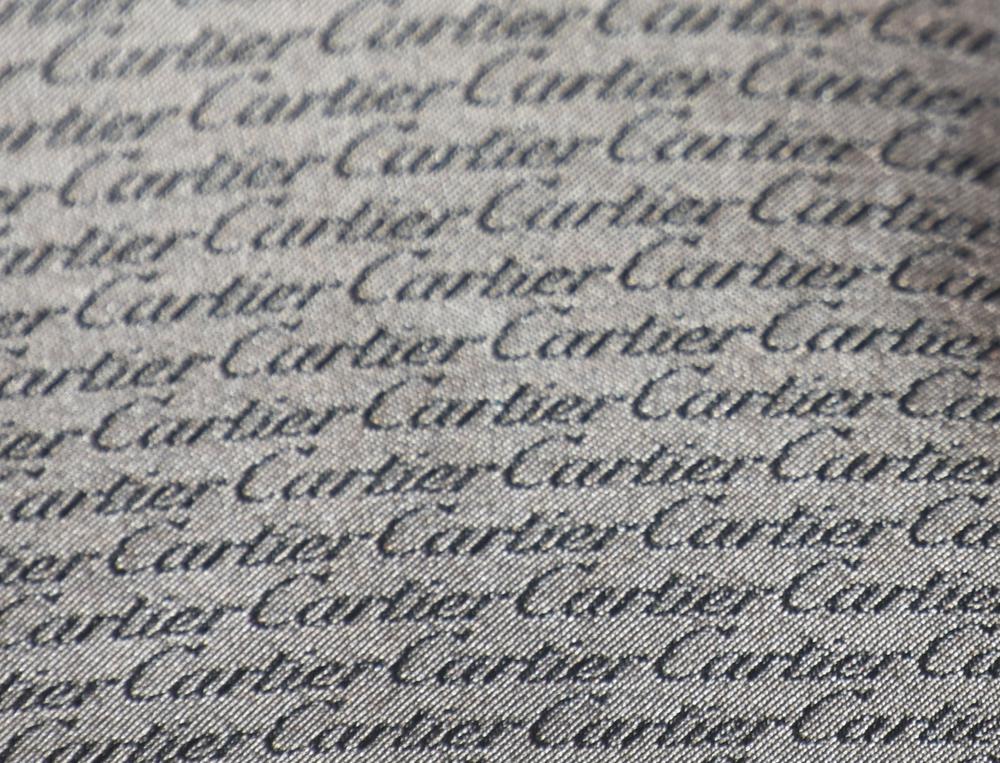 r Cartier Cartier Cartier Car
artier Cartier Cartier Cartier
r Cartier Cartier Cartier Car
artier Cartier Cartier Cartier
er Cartier Cartier Cartier Car
artier Cartier Cartier Cartier
er Cartier Cartier Cartier Ca
Cartier Cartier Cartier Cartier
ier Cartier Cartier Cartier Ca
Cartier Cartier Cartier Cartier
tier Cartier Cartier Cartier Ca
Cartier Cartier Cartier Cartier